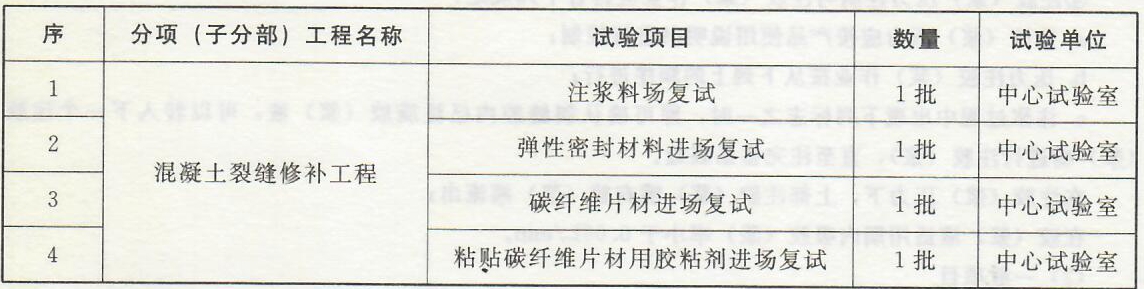 序 分项（子分部）工程名称 试验项目 数量 试验单位
1 注浆料场复试 1批 中心试验室
2 弹性密封材料进场复试 1批 中心试验室
混凝土裂缝修补工程
3 碳纤维片材进场复试 1批 中心试验室
4 粘贴碳纤维片材用胶粘剂进场复试 1批 中心试验室